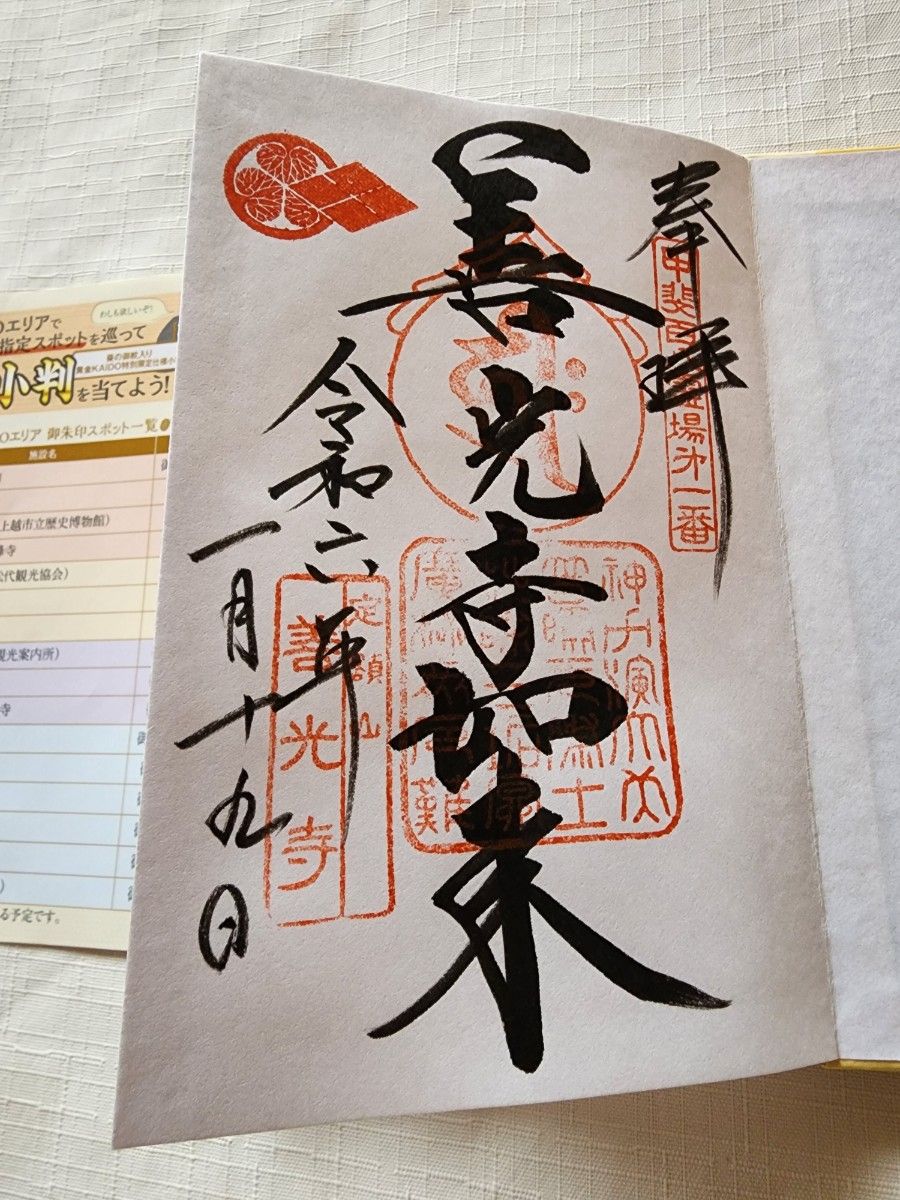 奉拝
甲斐百霊場第一番
善光寺如来
令和六年
一月十九日
定額山
善光寺
わしも欲しいぞ!
エリアで
指定スポットを巡って
葵の御紋入り
黄金KAIDO特別限定仕様小
小判を当てよう!
エリア 御朱印スポット一覧
施設名
上越市立歴史博物館)
寺
代観光協会)
観光案内所)
寺
る予定です。